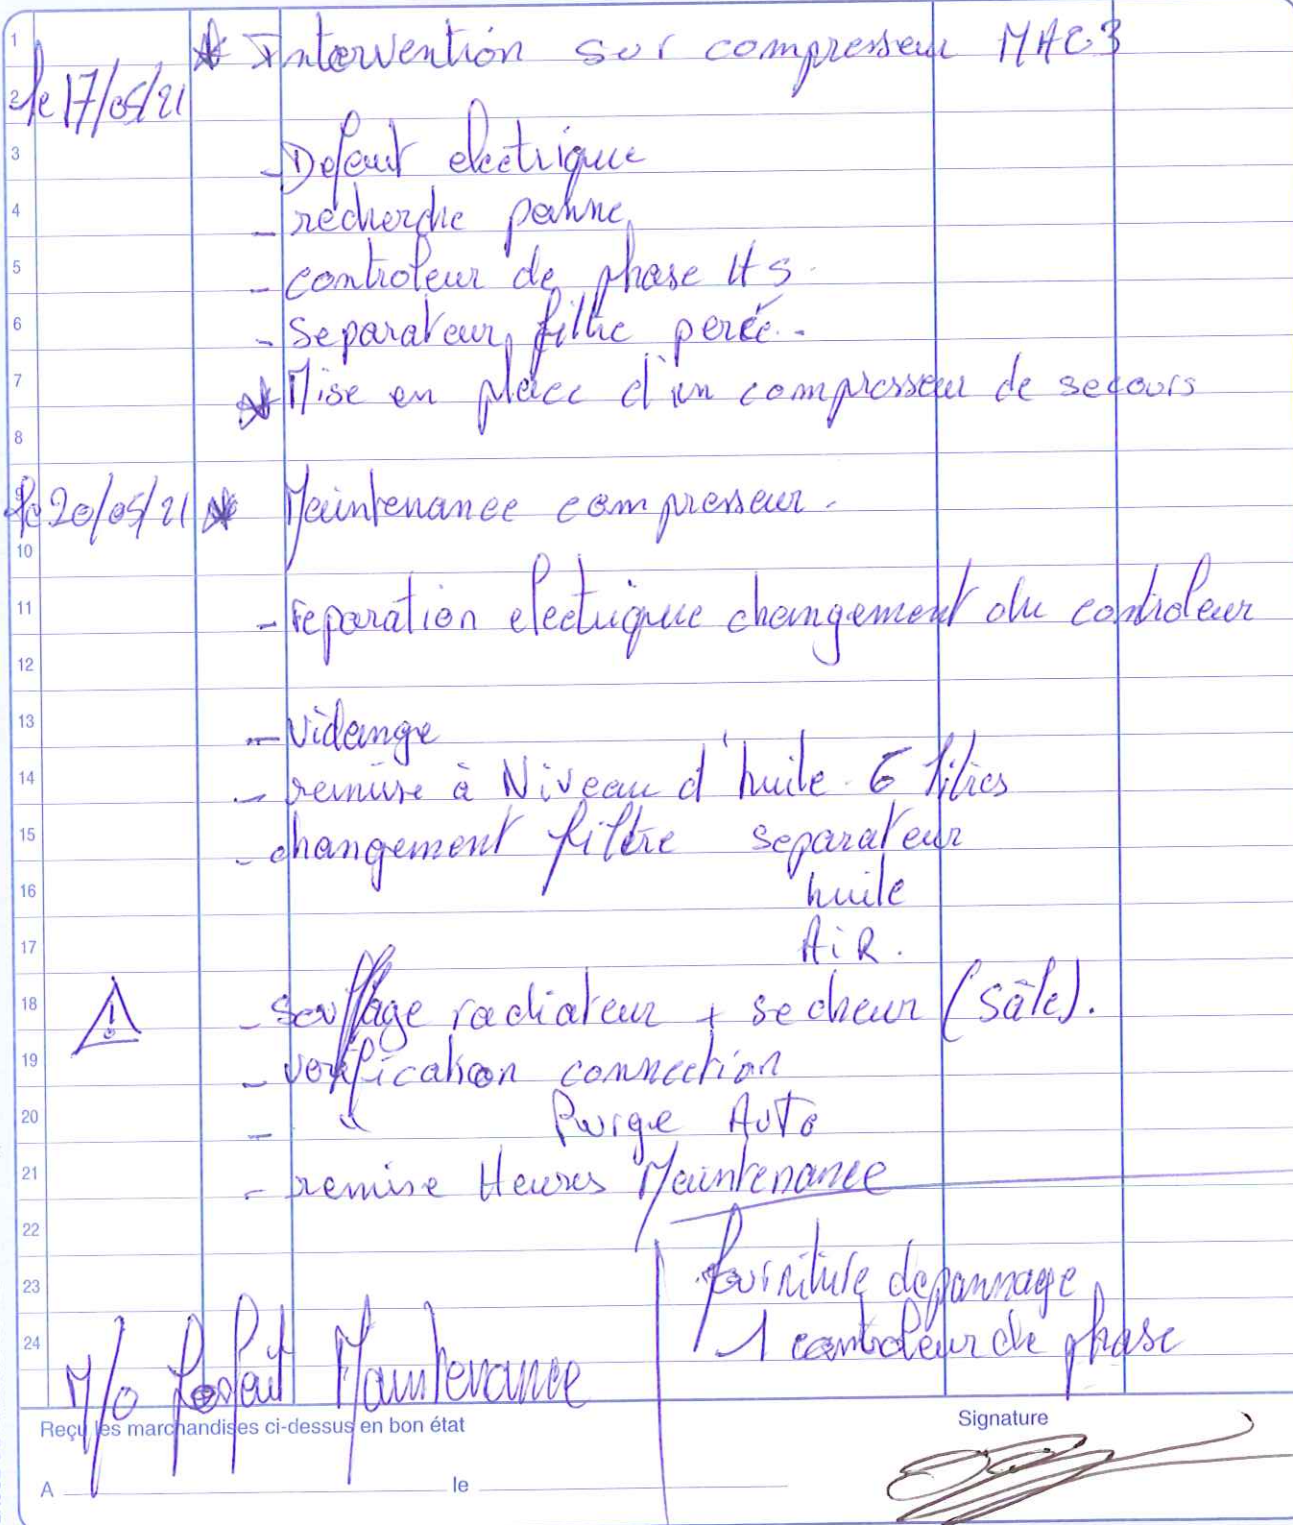 1
* Intervention sur compresseur MAC3
2 le 17/05/21
3 - Defaut electrique
4 - recherche panne
5 - controleur de phase HS.
6 - Separateur, filtre percé.
7 * Mise en place d'un compresseur de secours
8
9 le 20/05/21 * Maintenance compresseur.
10
11 - reparation electrique changement du controleur
12
13 - Vidange
14 - remise à Niveau d'huile 6 litres
15 - changement filtre separateur
16 huile
17 AiR.
18 ⚠ - Soufflage radiateur + secheur (sâle).
19 - verification connection
20 - " Purge AuTo
21 - remise Heures Maintenance
22
23 fourniture depannage
24 1 controleur de phase
M/o Forfait Maintenance
Reçu les marchandises ci-dessus en bon état
Signature
A le